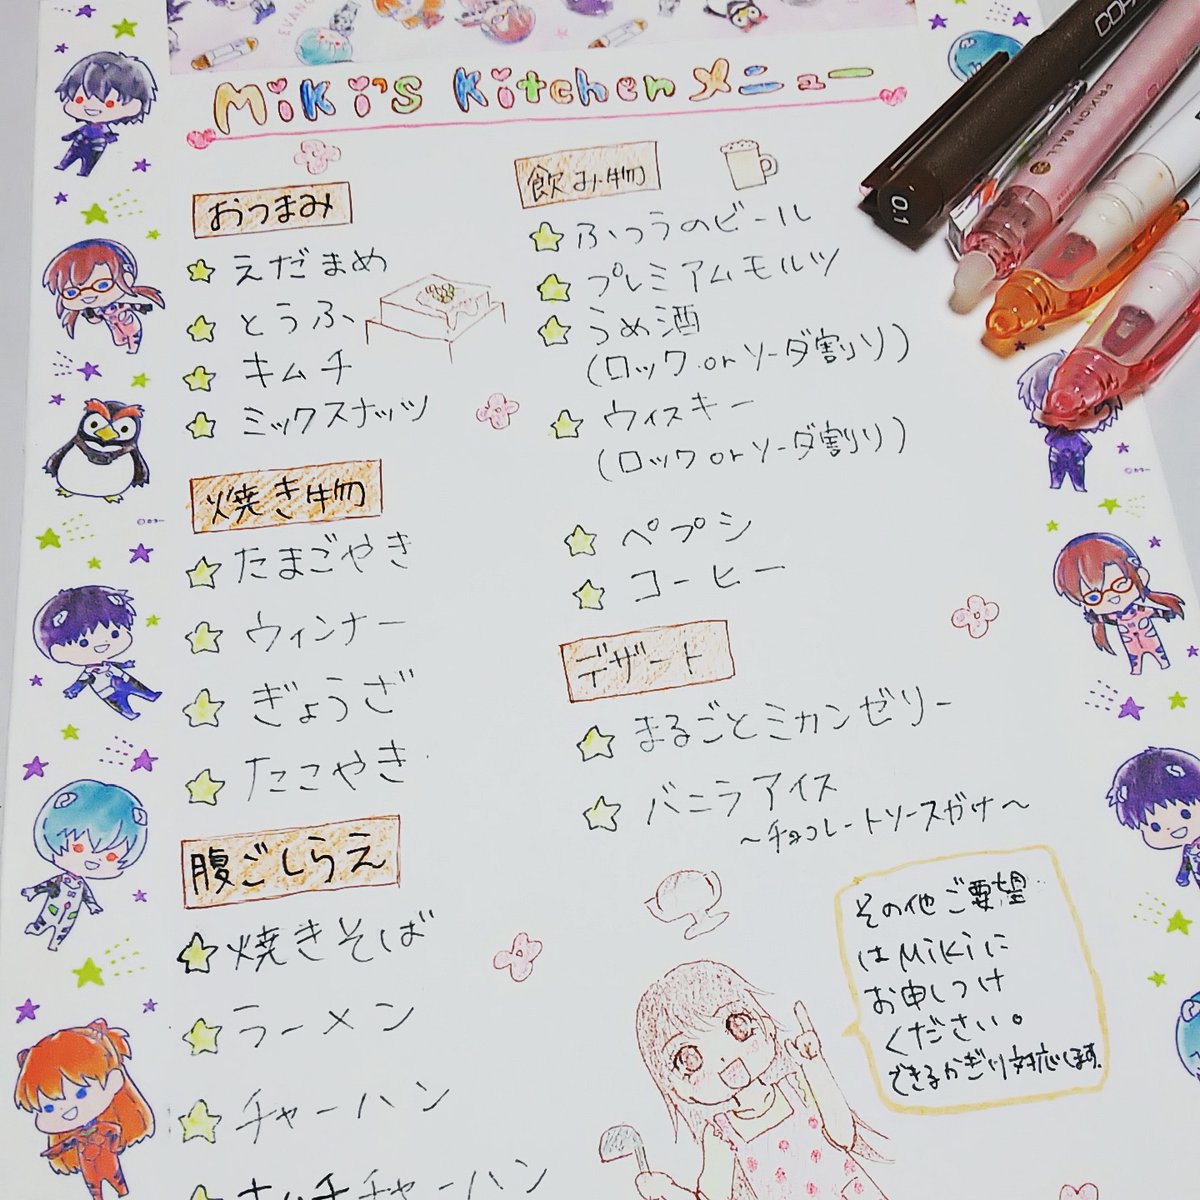 Miki's Kitchenメニュー
おつまみ
えだまめ
とうふ
キムチ
ミックスナッツ
焼き物
たまごやき
ウィンナー
ぎょうざ
たこやき
腹ごしらえ
焼きそば
ラーメン
チャーハン
キムチチャーハン
飲み物
ふつうのビール
プレミアムモルツ
うめ酒
(ロックorソーダ割り)
ウィスキー
(ロックorソーダ割り)
ペプシ
コーヒー
デザート
まるごとミカンゼリー
バニラアイス
〜チョコレートソースがけ〜
その他ご要望
はMikiに
お申しつけ
ください。
できるかぎり対応します。
0.1
FRIXION BALL